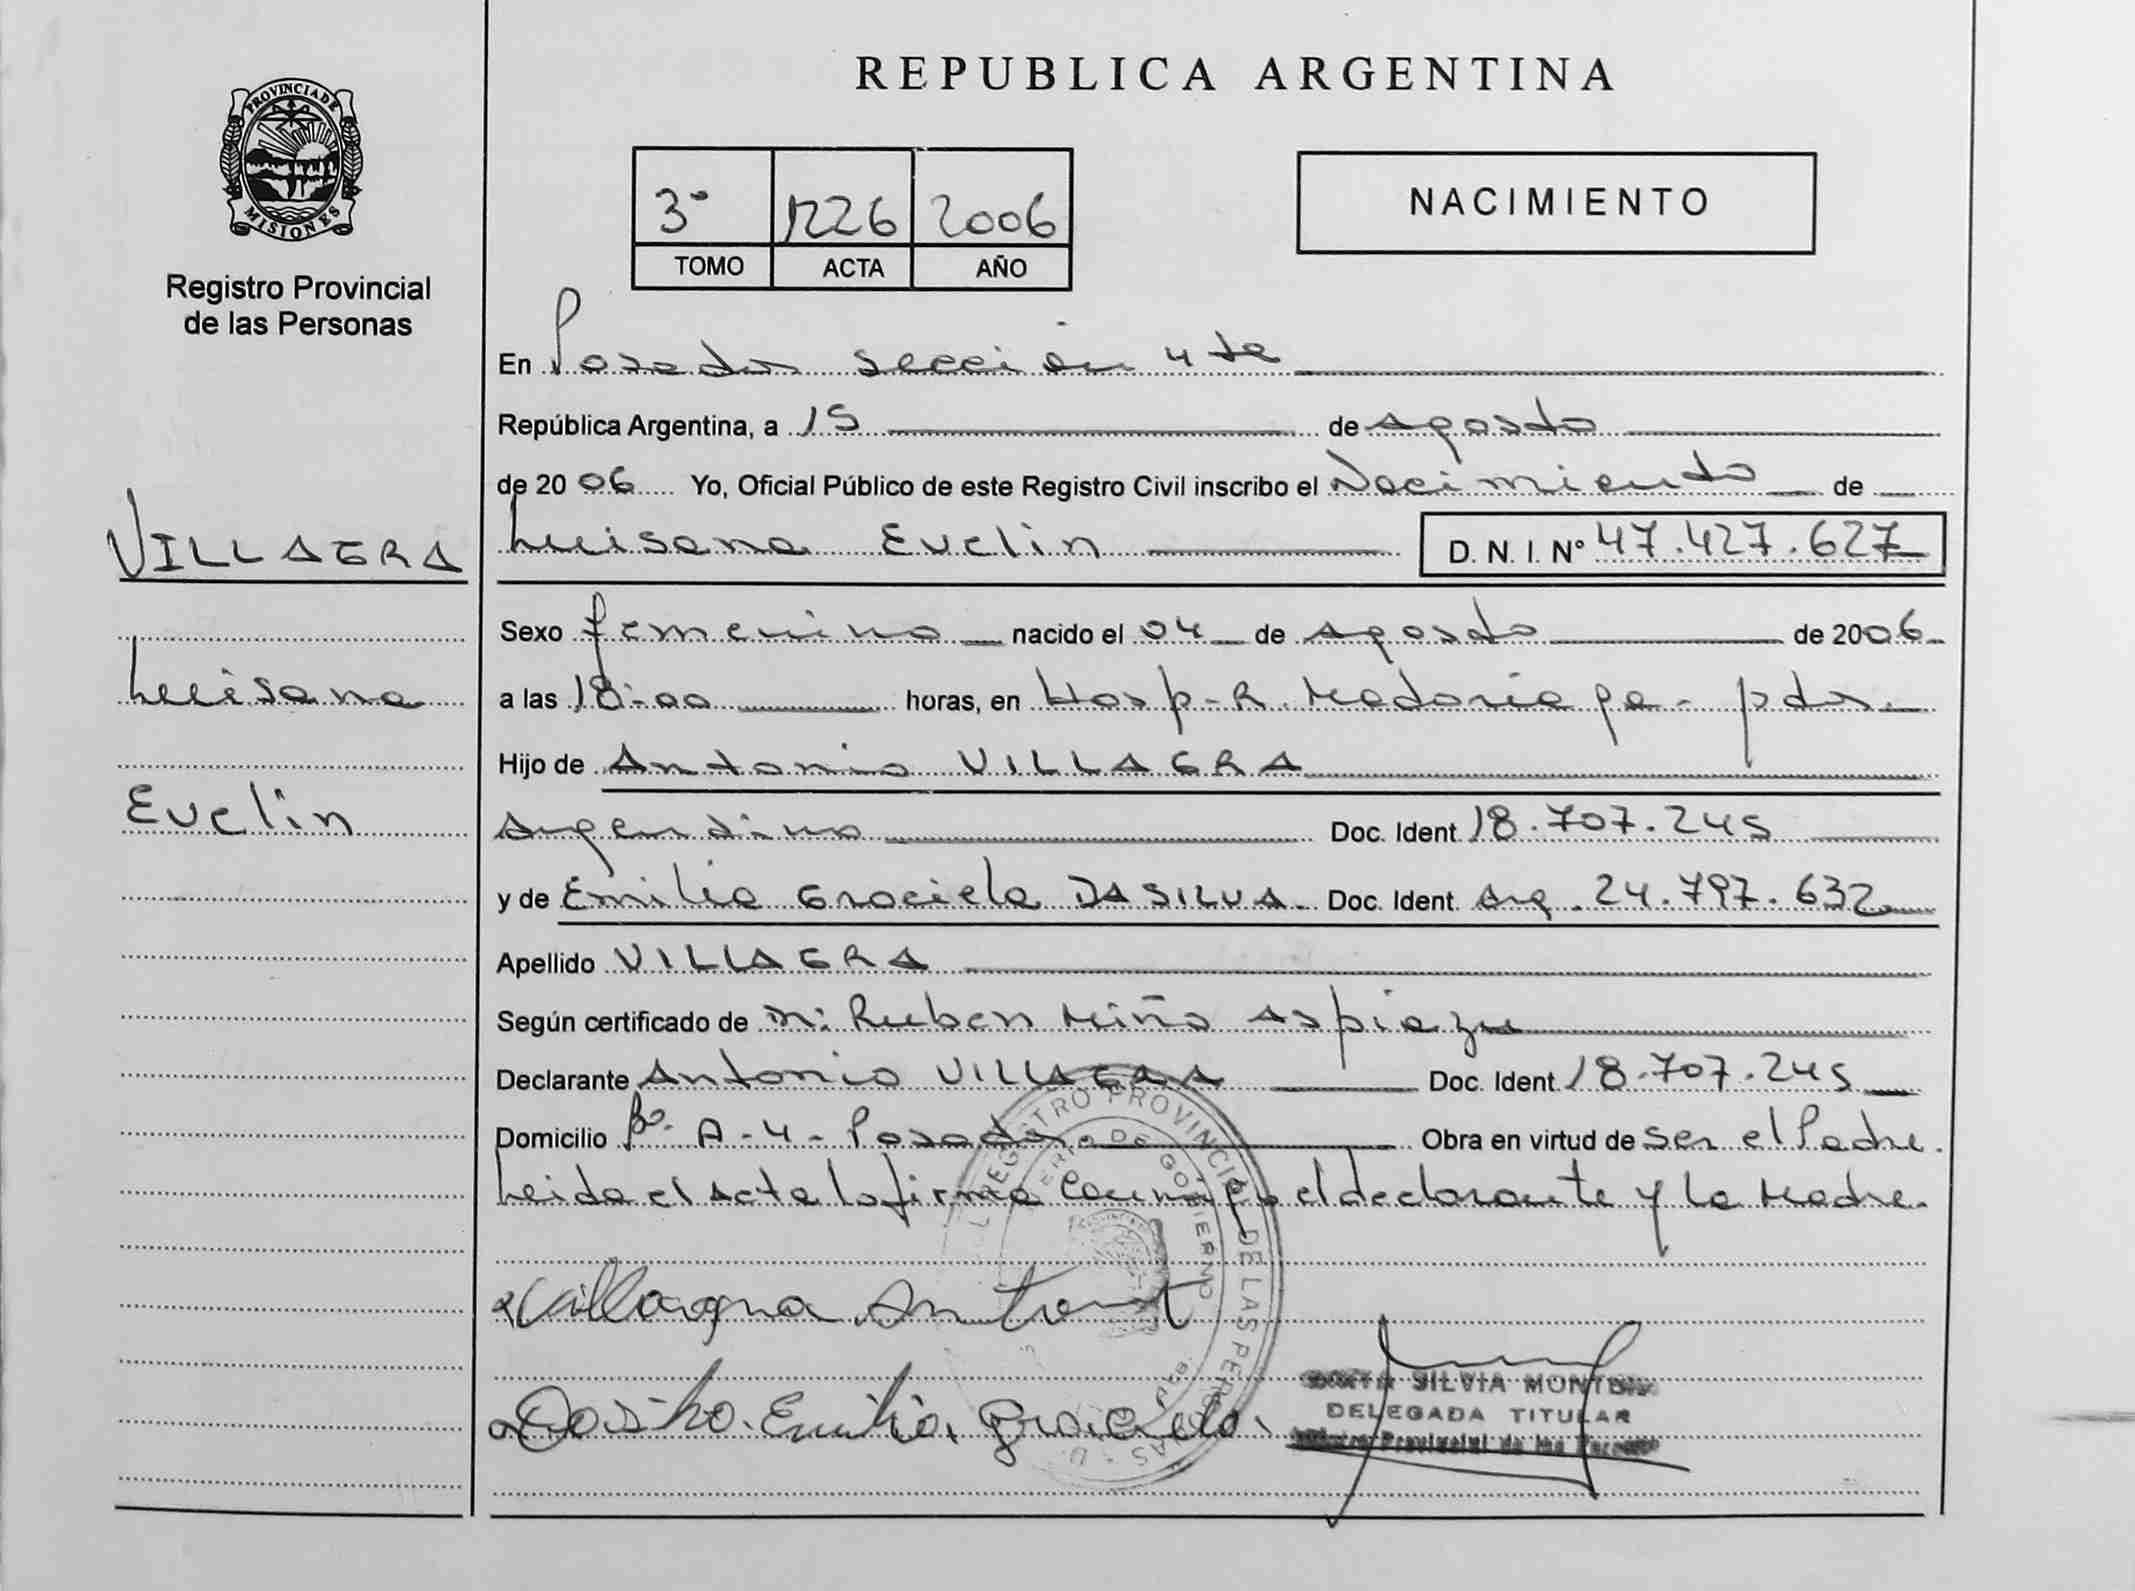 REPUBLICA ARGENTINA
PROVINCIA DE
MISIONES
Registro Provincial
de las Personas
3º 1226 2006
TOMO ACTA AÑO
NACIMIENTO
En Posadas sección 4ta
República Argentina, a 15 de Agosto
de 2006 Yo, Oficial Público de este Registro Civil inscribo el Nacimiento de
VILLAGRA
Luisana Evelin D. N. I. Nº 47.427.627
Sexo femenino nacido el 04 de Agosto de 2006
Luisana
a las 18:00 horas, en Hosp. R. Madariaga - pdas.
Hijo de Antonio VILLAGRA
Evelin
Argentino Doc. Ident 18.707.245
y de Emilia Graciela DASILVA Doc. Ident. Arg. 24.797.632
Apellido VILLAGRA
Según certificado de Dr: Ruben Miño Aspiazu
Declarante Antonio VILLAGRA Doc. Ident 18.707.245
Domicilio Bº A-4 - Posadas Obra en virtud de Ser el Padre.
Leida el acta la firma conmigo el declarante y la Madre.
REGISTRO PROVINCIAL DE LAS PERSONAS
DE GOBIERNO
Villagra Antonio
Dasilva Emilia Graciela
SILVIA
DELEGADA TITULAR
Provincial de las